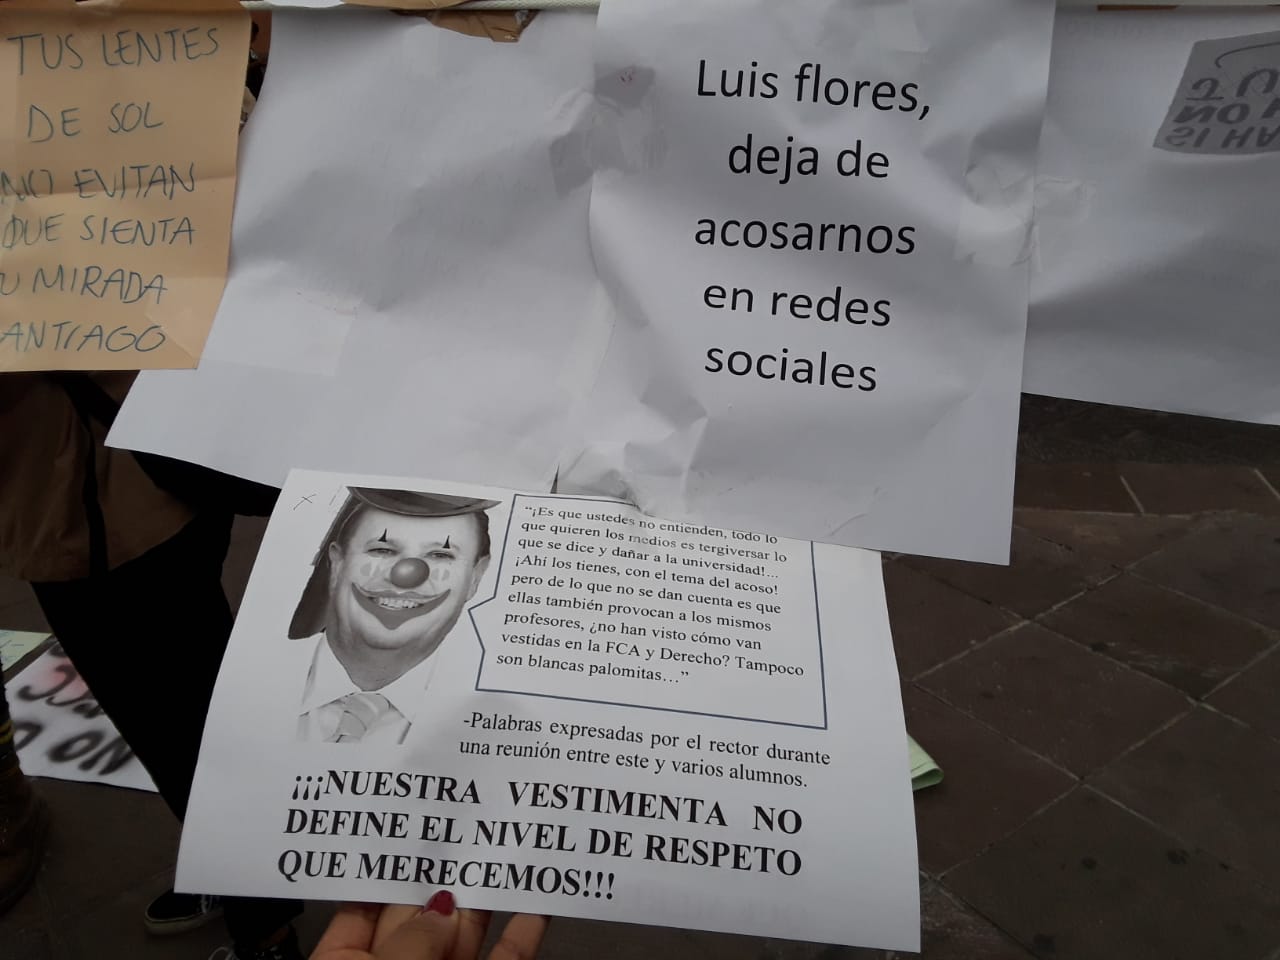 TUS LENTES
DE SOL
NO EVITAN
QUE SIENTA
U MIRADA
ANTIAGO
Luis flores,
deja de
acosarnos
en redes
sociales
SI HA
NO
“¡Es que ustedes no entienden, todo lo
que quieren los medios es tergiversar lo
que se dice y dañar a la universidad!...
¡Ahí los tienes, con el tema del acoso!
pero de lo que no se dan cuenta es que
ellas también provocan a los mismos
profesores, ¿no han visto cómo van
vestidas en la FCA y Derecho? Tampoco
son blancas palomitas…”
-Palabras expresadas por el rector durante
una reunión entre este y varios alumnos.
¡¡¡NUESTRA VESTIMENTA NO
DEFINE EL NIVEL DE RESPETO
QUE MERECEMOS!!!
NO